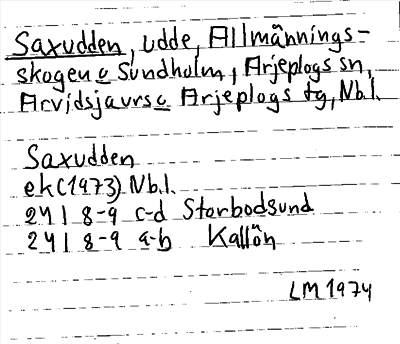 Saxudden, udde, Allmännings-
skogen o Sundholm, Arjeplogs sn,
Arvidsjaurs o Arjeplogs tg, Nb.l.
Saxudden
ek (1973) Nb.l.
24 I 8-9 c-d Storbodsund
24 I 8-9 a-b Kallön
LM 1974